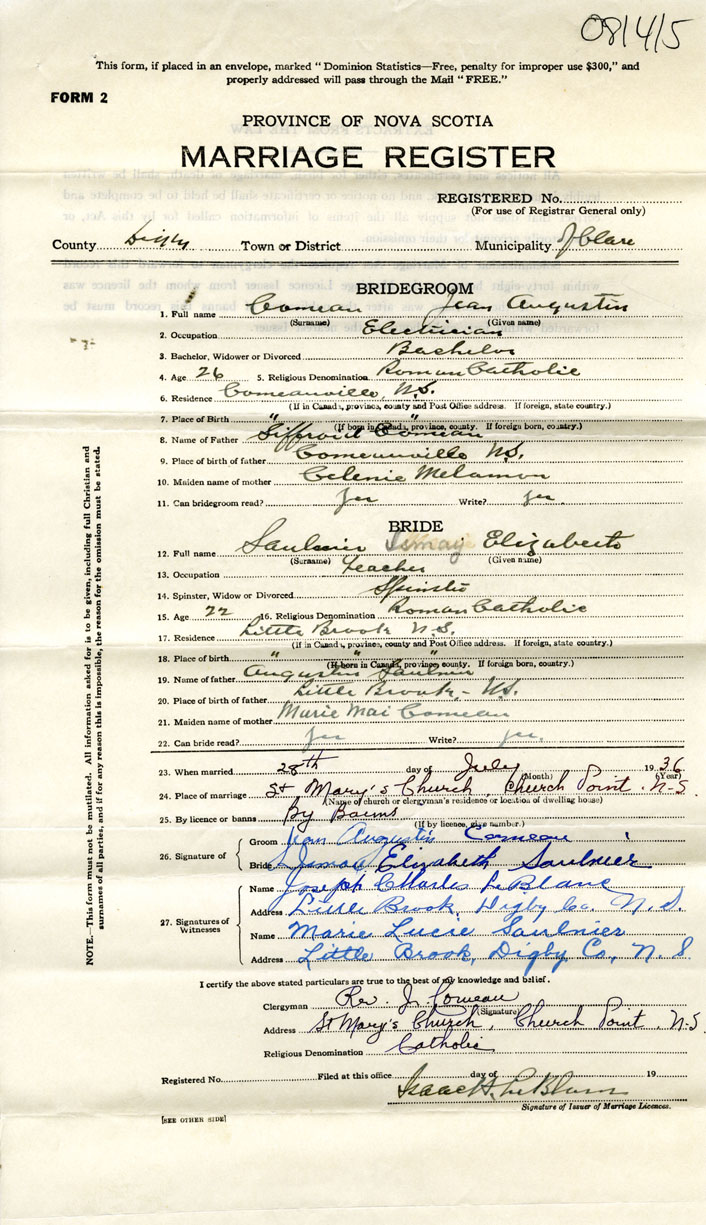 081415
This form, if placed in an envelope, marked "Dominion Statistics—Free, penalty for improper use $300," and
properly addressed will pass through the Mail "FREE."
FORM 2
PROVINCE OF NOVA SCOTIA
MARRIAGE REGISTER
REGISTERED No.
(For use of Registrar General only)
County Digby Town or District Municipality of Clare
BRIDEGROOM
1. Full name Comeau Jean Augustin
(Surname) (Given name)
2. Occupation Electrician
3. Bachelor, Widower or Divorced Bachelor
4. Age 26 5. Religious Denomination Roman Catholic
6. Residence Comeauville, N.S.
(If in Canada, province, county and Post Office address. If foreign, state country.)
7. Place of Birth " "
(If born in Canada, province, county. If foreign born, country.)
8. Name of Father Siffroid Comeau
9. Place of birth of father Comeauville N.S.
10. Maiden name of mother Celenie Melanson
11. Can bridegroom read? yes Write? yes
BRIDE
12. Full name Saulnier Ismay Elizabeth
(Surname) (Given name)
13. Occupation teacher
14. Spinster, Widow or Divorced Spinster
15. Age 22 16. Religious Denomination Roman Catholic
17. Residence Little Brook N.S.
(If in Canada, province, county and Post Office address. If foreign, state country.)
18. Place of birth " "
(If born in Canada, province, county. If foreign born, country.)
19. Name of father Augustin Saulnier
20. Place of birth of father Little Brook - N.S.
21. Maiden name of mother Marie Mai Comeau
22. Can bride read? yes Write? yes.
23. When married 28th day of July 1936
(Month) (Year)
24. Place of marriage St Mary's Church, Church Point. N-S.
(Name of church or clergyman's residence or location of dwelling house)
25. By licence or banns By Banns
(If by licence, give number.)
26. Signature of
Groom Jean Augustin Comeau
Bride Ismay Elizabeth Saulnier
27. Signatures of Witnesses
Name Joseph Charles LeBlanc
Address Little Brook, Digby Co. N.S.
Name Marie Lucie Saulnier
Address Little Brook, Digby Co, N.S.
I certify the above stated particulars are true to the best of my knowledge and belief.
Clergyman Rev. J. Comeau
(Signature)
Address St Mary's Church, Church Point, N-S.
Religious Denomination Catholic
Registered No. Filed at this office day of 19
Isaac H. LeBlanc
Signature of Issuer of Marriage Licences.
[SEE OTHER SIDE]
NOTE.—This form must not be mutilated. All information asked for is to be given, including full Christian and
surnames of all parties, and if for any reason this is impossible, the reason for the omission must be stated.